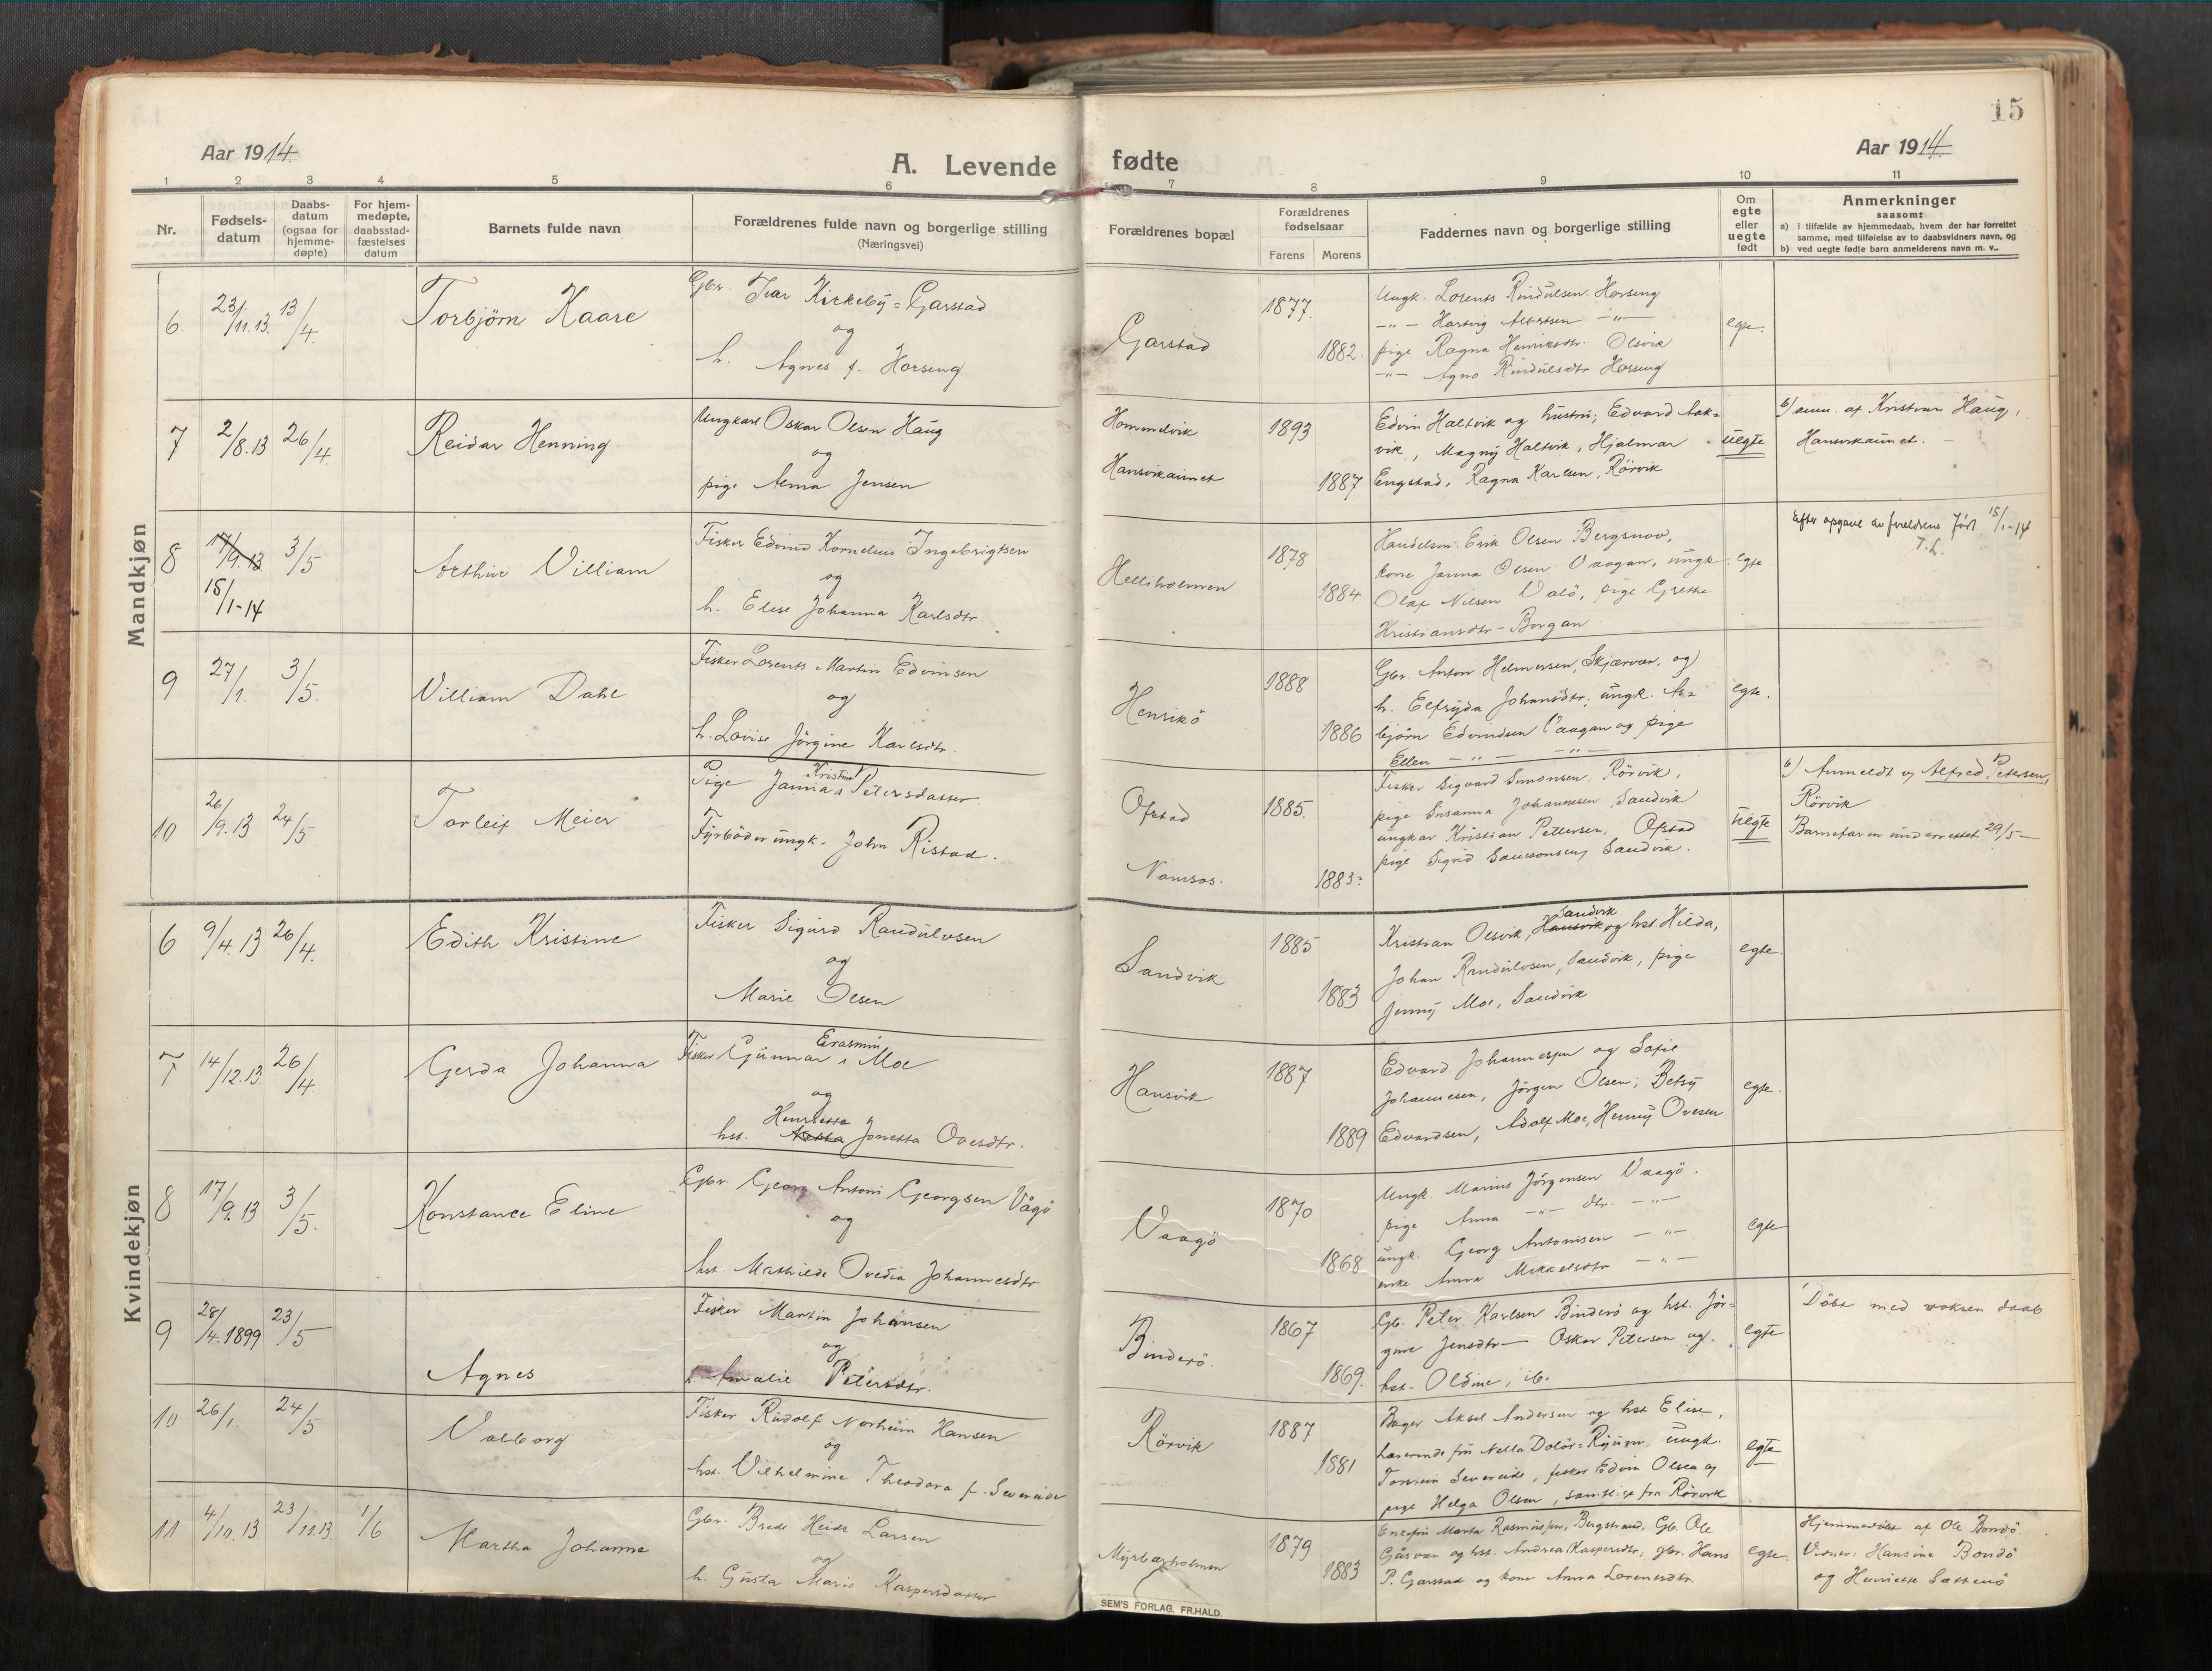 15
Aar 1914.
A. Levende fødte
Aar 1914.
1 2 3 4 5 6 7 8 9 10 11
Nr.
Fødsels-
datum
Daabs-
datum
(ogsaa for
hjemme-
døpte)
For hjem-
medøpte,
daabsstad-
fæstelses
datum
Barnets fulde navn
Forældrenes fulde navn og borgerlige stilling
(Næringsvei)
Forældrenes bopæl
Forældrenes
fødselsaar
Farens Morens
Faddernes navn og borgerlige stilling
Om
egte
eller
uegte
født
Anmerkninger
saasom:
a) i tilfælde av hjemmedaab, hvem der har forrettet
samme, med tilføielse av to daabsvidners navn, og
b) ved uegte fødte barn anmelderens navn m. v..
Mandkjøn
6. 23/11.13. 13/4. Torbjørn Kaare
Gbr. Ivar Kirkeby=Garstad
og
h. Agnes f. Horseng
Garstad
1877.
1882.
Ungk. Lorents Rindulsen Horseng
—"— Hartvig Albertsen —"—
pige Ragna Henriksdtr. Olsvik
—"— Agna Rindulsdtr Horseng
egte.
7 2/8.13 26/4. Reidar Henning
Ungkarl Oskar Olsen Haug
og
pige Anna Jensen
Hommelvik
Hansvikaunet
1893
1887
Edvin Haltvik og hustru, Edvard Aak=
vik, Magny Haltvik, Hjalmar
Engstad, Ragna Karlsen, Rörvik
uegte
b) anm. af Kristian Haug,
Hansvikaunet.
8 17/9.13 3/5 Arthur Villiam
15/1-14
Fisker Edvind Kornelius Ingebrigtsen
og
h. Elise Johanna Karlsdtr.
Helliholmen
1878
1884
Handelsm. Erik Olsen Bergsnov,
kone Janna Olsen Vaagan, ungk.
Olaf Nilsen Valö, pige Grethe
Kristiansdtr - Borgan
egte
Efter opgave av foreldrene født 15/1-14
T.L.
9 27/1. 3/5. Villiam Dahl
Fisker Lorents Martin Edvinsen
og
h. Lovise Jörgine Karlsdtr.
Henrikö
1888
1886
Gbr. Anton Helmersen, Skjærvær, og
h. Elfryda Johansdtr, ungk. As=
björn Edvindsen Vaagan og pige
Ellen —"—
egte.
10 26/9.13 24/5 Torleif Meier
Pige Janna Kristine Petersdatter.
Fyrböder ungk. John Ristad.
Ofstad
Namsos.
1885.
1883
Fisker Sigvard Simonsen, Rörvik,
pige Susanna Johannesen Sandvik
ungkar Kristian Pettersen, Ofstad
pige Sigrid Samsonsen, Sandvik.
uegte
b) Anmeldt av Alfred Petersen,
Rörvik
Barnefaren underrettet 29/5 —
Kvindekjøn
6 9/4.13 26/4. Edith Kristine
Fisker Sigurd Randulvsen
og
Marie Olsen
Sandvik
1885
1883
Sandvik
Kristian Olsvik, Hansvik og hst. Hilda,
Johan Randulvsen, Sandvik, pige
Jenny Moe, Sandvik
egte.
7 14/12.13 26/4. Gerda Johanna
Fisker Gunnar Erasmin Moe
og
Henrietta
hst. Netta Jonetta Ovesdtr.
Hansvik
1887
1889
Edvard Johannesen og Sofie
Johannesen, Jörgen Olsen; Betsy
Edvardsen, Adolf Moe, Henny Ovesen
egte.
8 17/9.13 3/5. Konstance Eline
Gbr. Georg Antoni Georgsen Vågö
og
hst. Mathilde Ovedia Johannesdtr
Vaagö
1870
1868
Ungk. Marius Jörgensen Vaagö.
pige Anna —"— dtr. —"—
ungk. Georg Antonisen —"—
enke Anna Mikkelsdtr —"—
egte
9 28/4.1899 23/5 Agnes
Fisker Martin Johansen
og
Amalie Petersdtr.
Binderö.
1867
1869.
Gb. Peter Karlsen Binderö og hst. Jör=
gine Jensdtr — Oskar Petersen og
hst. Oldine, ib.
egte
Döbt med voksen daab
10 26/1. 24/5 Valborg
Fisker Rudolf Norheim Hansen
og
hst. Vilhelmine Theodora f. Severeide
Rörvik
1887
1881
Bager Aksel Andersen og hst Elise,
Lærerinde fru Netta Dolör=Ryum, ungk.
Torstein Severeide, fisker Edvin Olsen og
pige Helga Olsen, samtlige fra Rörvik
egte
11 4/10.13 23/11.13. 1/6 Martha Johanne
Gbr. Brede Heide Larsen
og
h. Gusta Marie Kaspersdatter
Myrbærholmen
1879
1883
Enkefru Marta Rasmussen, Bergstrand, Gb. Ole
Gåsvær og hst. Andrea Kaspersdtr, gbr. Hans
P. Garstad og kone Anna Lorentsdtr.
egte.
Hjemmedöbt af Ole Bondö.
Vidner: Hansine Bondö
og Henriette Sættenö
SEM'S FORLAG, FR.HALD.